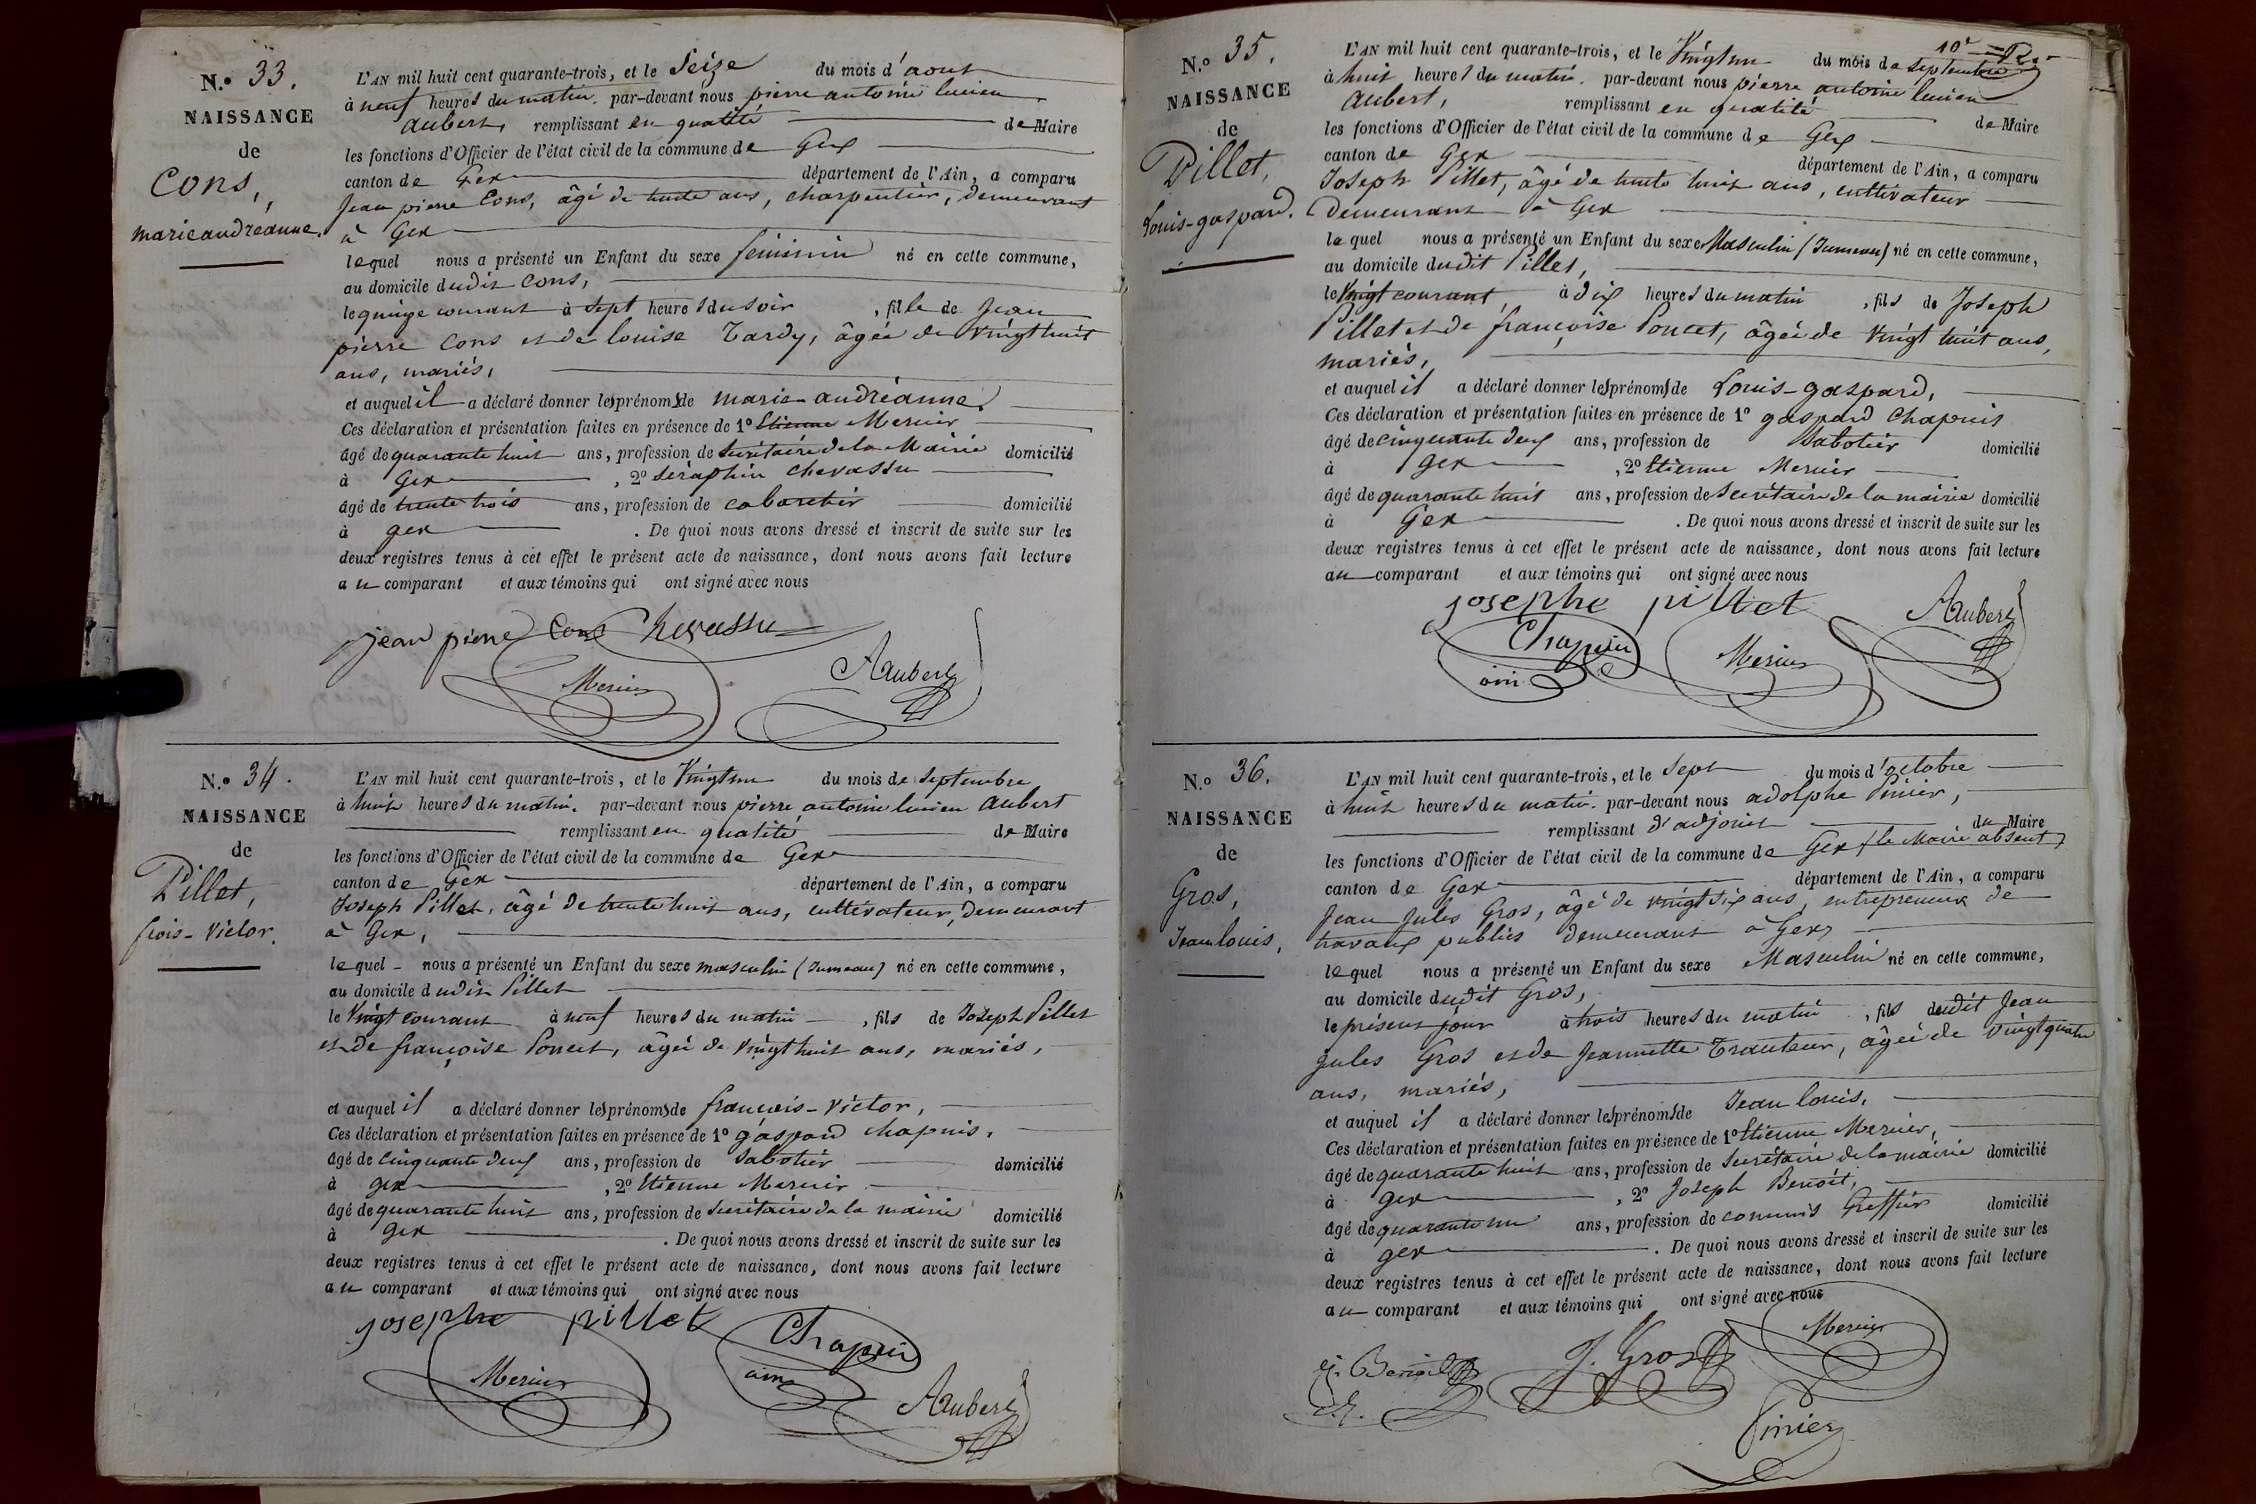 N.º 33.
NAISSANCE
de
Cons,
marie andréanne.
L'AN mil huit cent quarante-trois, et le Seize du mois d'aout
à neuf heures du matin. par-devant nous pierre antoine lucien
aubert, remplissant en qualité de Maire
les fonctions d'Officier de l'état civil de la commune de Gex
canton de Gex département de l'Ain, a comparu
Jean pierre Cons, âgé de trente ans, charpentier, demeurant
à Gex
lequel nous a présenté un Enfant du sexe féminin né en cette commune,
au domicile dudit Cons,
le quinze courant à sept heures du soir, fille de Jean
pierre Cons et de louise Tardy, âgée de vingt huit
ans, mariés,
et auquel il a déclaré donner les prénoms de marie andréanne.
Ces déclaration et présentation faites en présence de 1º Etienne Mercier
âgé de quarante huit ans, profession de secrétaire de la Mairie domicilié
à Gex, 2º Séraphin Chevassu
âgé de trente trois ans, profession de cabaretier domicilié
à gex. De quoi nous avons dressé et inscrit de suite sur les
deux registres tenus à cet effet le présent acte de naissance, dont nous avons fait lecture
au comparant et aux témoins qui ont signé avec nous
jean pierre Cons Chevassu
Mercier Aubert
N.º 34.
NAISSANCE
de
Pillet,
fcois-Victor.
L'AN mil huit cent quarante-trois, et le Vingt un du mois de Septembre
à huit heures du matin. par-devant nous pierre antoine lucien aubert
remplissant en qualité de Maire
les fonctions d'Officier de l'état civil de la commune de Gex
canton de Gex département de l'Ain, a comparu
Joseph Pillet, âgé de trente huit ans, cultivateur, demeurant
à Gex,
lequel nous a présenté un Enfant du sexe masculin (Jumeau) né en cette commune,
au domicile dudit Pillet
le Vingt courant à neuf heures du matin, fils de Joseph Pillet
et de françoise Poncet, âgée de vingt huit ans, mariés,
et auquel il a déclaré donner les prénoms de françois-Victor,
Ces déclaration et présentation faites en présence de 1º gaspard chapuis,
âgé de cinquante deux ans, profession de Sabotier domicilié
à gex, 2º Etienne Mercier
âgé de quarante huit ans, profession de secrétaire de la mairie domicilié
à Gex. De quoi nous avons dressé et inscrit de suite sur les
deux registres tenus à cet effet le présent acte de naissance, dont nous avons fait lecture
au comparant et aux témoins qui ont signé avec nous
josephe pillet Chapuis
Mercier Aubert
10e
N.º 35.
NAISSANCE
de
Pillet,
Louis-gaspard.
L'AN mil huit cent quarante-trois, et le Vingt un du mois de septembre
à huit heures du matin. par-devant nous pierre antoine lucien
aubert, remplissant en qualité de Maire
les fonctions d'Officier de l'état civil de la commune de Gex
canton de Gex département de l'Ain, a comparu
Joseph Pillet, âgé de trente huit ans, cultivateur
demeurant à Gex
lequel nous a présenté un Enfant du sexe Masculin (Jumeau) né en cette commune,
au domicile dudit Pillet,
le Vingt courant, à dix heures du matin, fils de Joseph
Pillet et de françoise Poncet, âgée de vingt huit ans,
mariés,
et auquel il a déclaré donner les prénoms de Louis-gaspard,
Ces déclaration et présentation faites en présence de 1º gaspard Chapuis
âgé de cinquante deux ans, profession de Sabotier domicilié
à gex, 2º Etienne Mercier
âgé de quarante huit ans, profession de Secrétaire de la mairie domicilié
à Gex. De quoi nous avons dressé et inscrit de suite sur les
deux registres tenus à cet effet le présent acte de naissance, dont nous avons fait lecture
au comparant et aux témoins qui ont signé avec nous
josephe pillet Aubert
Chapuis Mercier
N.º 36.
NAISSANCE
de
Gros,
Jean louis,
L'AN mil huit cent quarante-trois, et le Sept du mois d'octobre
à huit heures du matin. par-devant nous adolphe Pinier,
remplissant d'adjoint du Maire
les fonctions d'Officier de l'état civil de la commune de Gex (le Maire absent)
canton de Gex département de l'Ain, a comparu
Jean Jules Gros, âgé de vingt six ans, entrepreneur de
travaux publics demeurant à Gex
lequel nous a présenté un Enfant du sexe Masculin né en cette commune,
au domicile dudit Gros,
le présent jour à trois heures du matin, fils dudit Jean
Jules Gros et de Jeannette Tranteur, âgée de vingt quatre
ans, mariés,
et auquel il a déclaré donner les prénoms de Jean louis,
Ces déclaration et présentation faites en présence de 1º Etienne Mercier,
âgé de quarante huit ans, profession de Secrétaire de la mairie domicilié
à gex, 2º Joseph Benoît,
âgé de quarante un ans, profession de commis Greffier domicilié
à gex. De quoi nous avons dressé et inscrit de suite sur les
deux registres tenus à cet effet le présent acte de naissance, dont nous avons fait lecture
au comparant et aux témoins qui ont signé avec nous
Benoit J. Gros Mercier
Pinier